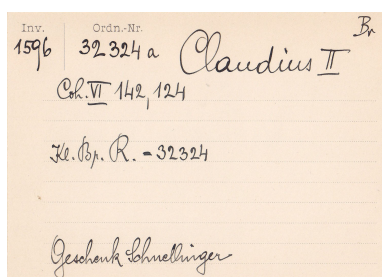 Inv. Ordn.-Nr. Br
1596 32324a Claudius II
Coh. VI 142, 124
Kl. Bp. R. = 32324
Geschenk Schnellinger